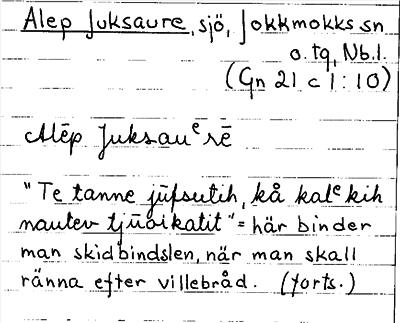 Alep Juksaure, sjö, Jokkmokks sn
o. tg, Nb.l.
(Gn 21 c 1:10)
Alēp Juksauᵉrē
"Te tanne jūfsutih, kå kalᵉkih
nautev tjūoikatit" = här binder
man skidbindslen, när man skall
ränna efter villebråd. (forts.)